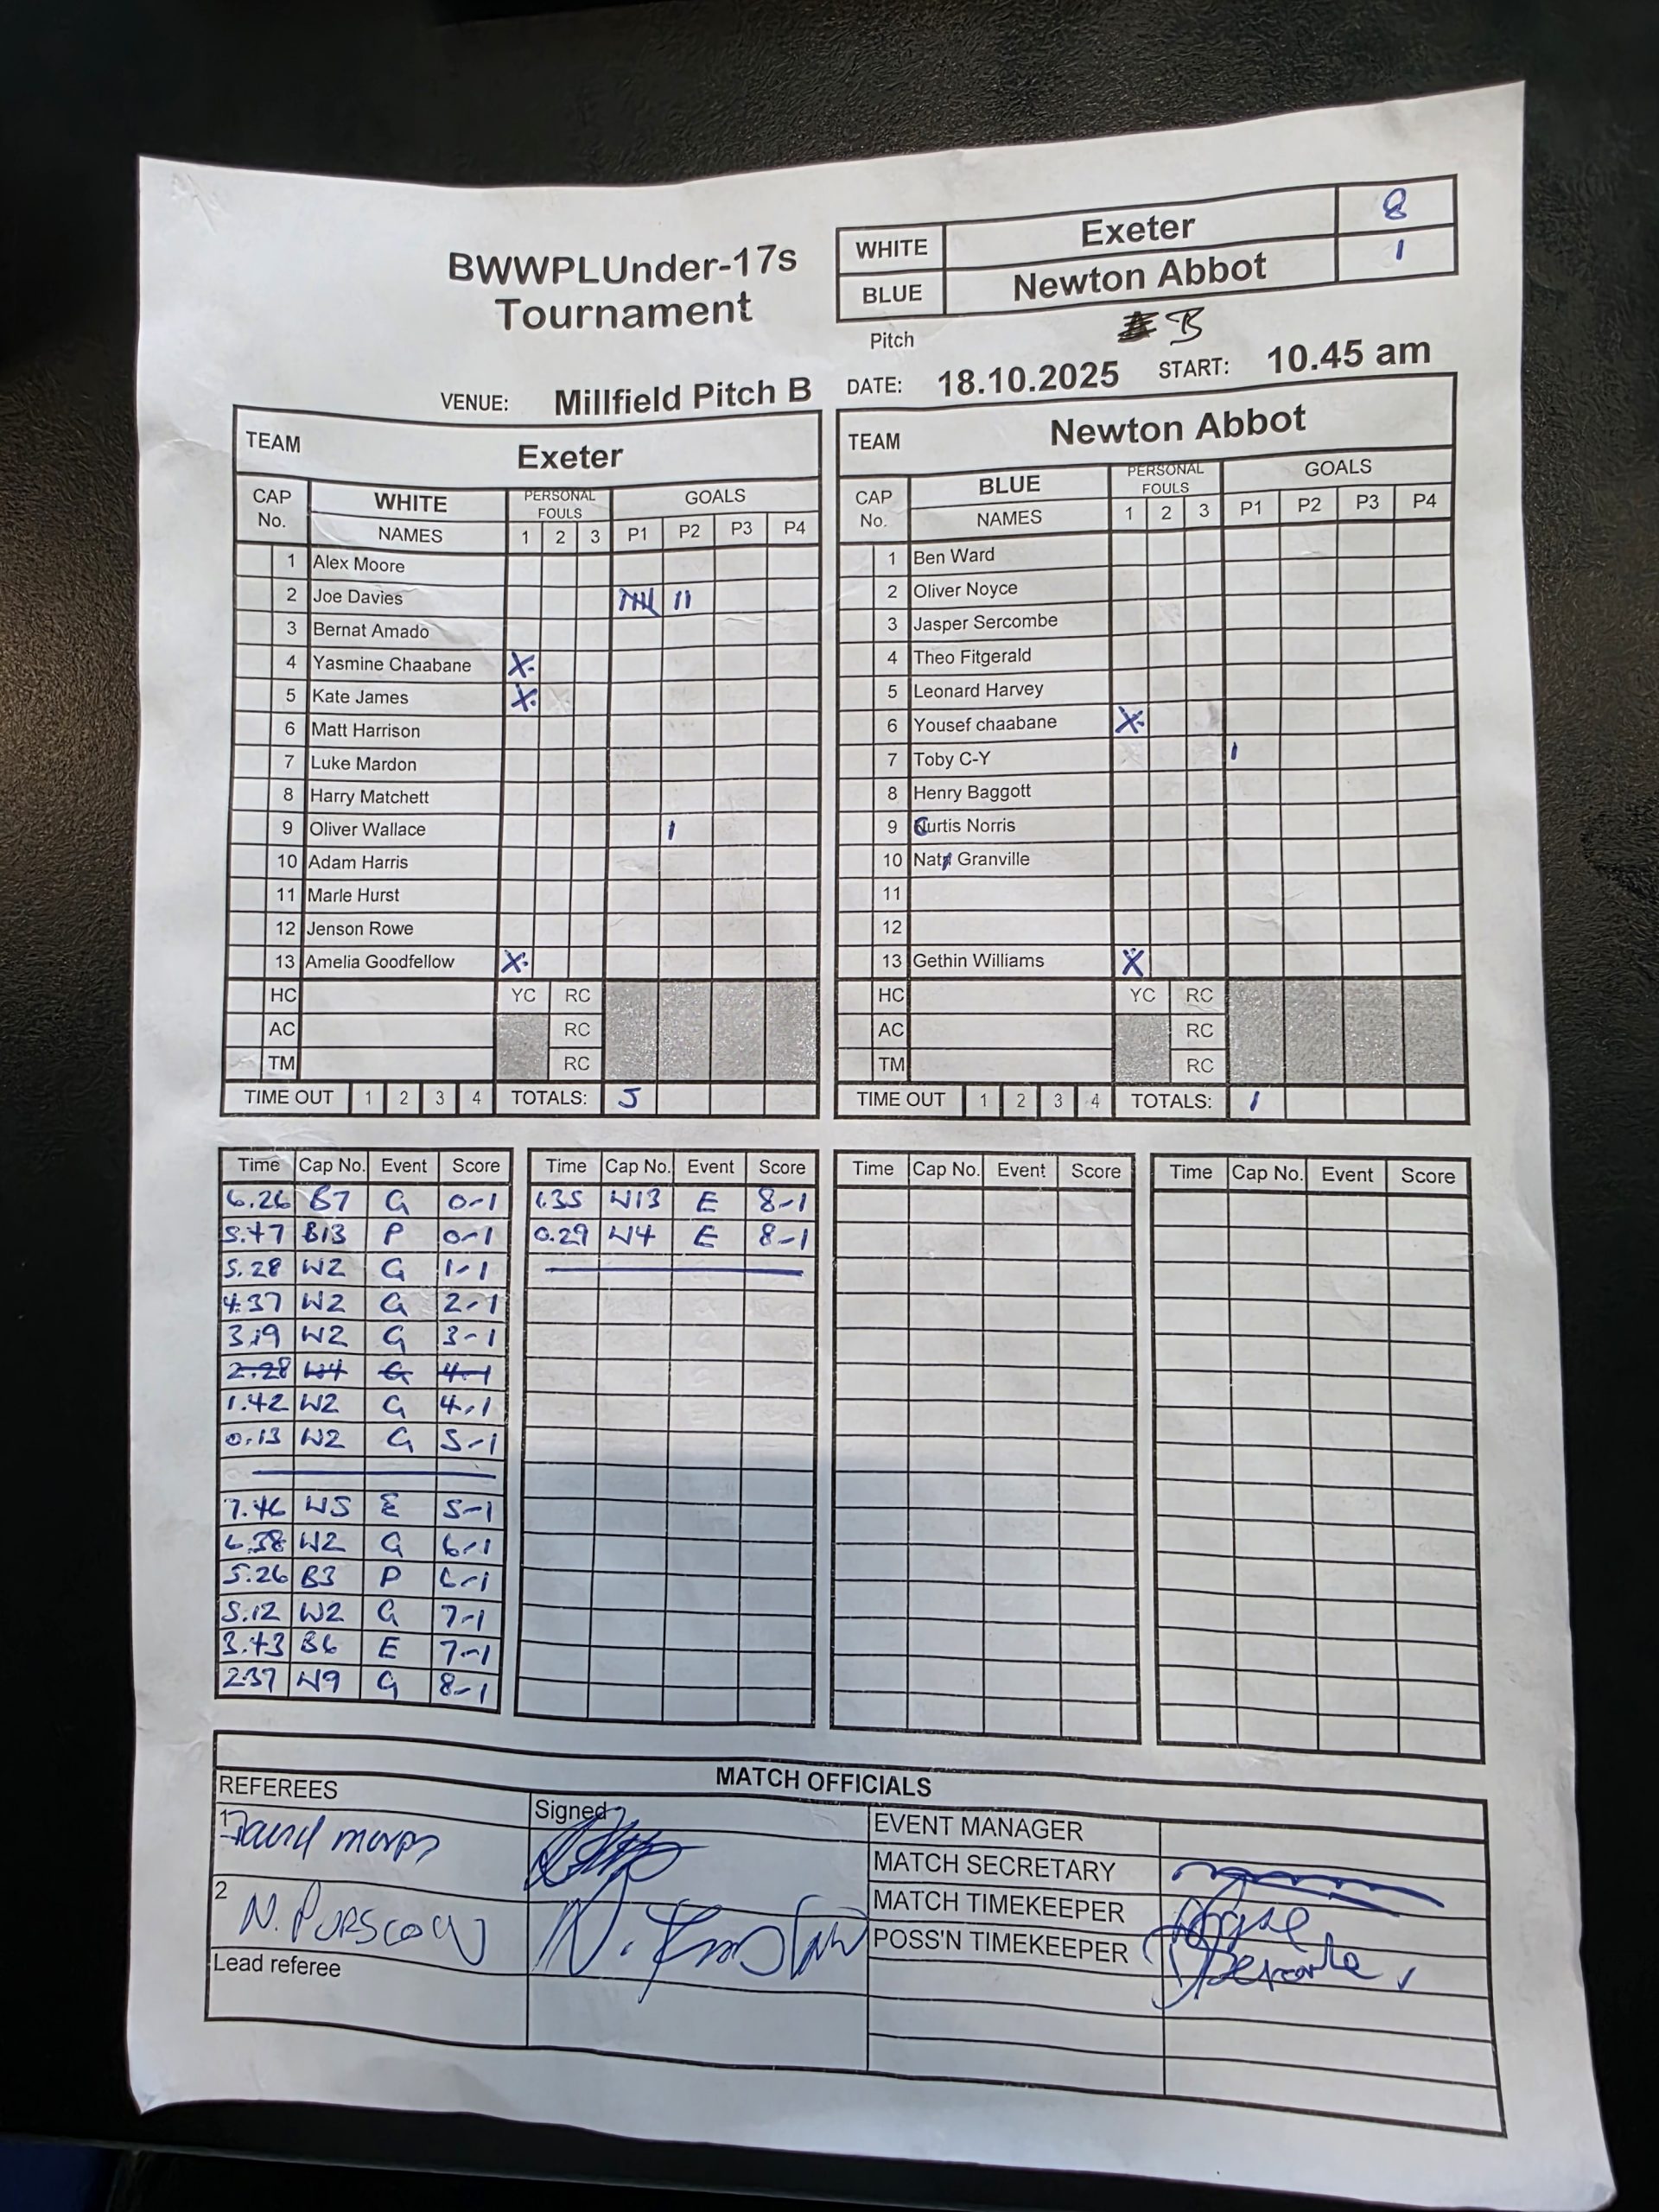 WHITE Exeter 8
BLUE Newton Abbot 1
BWWPLUnder-17s
Tournament
Pitch B
VENUE: Millfield Pitch B DATE: 18.10.2025 START: 10.45 am
TEAM Exeter
CAP No. WHITE PERSONAL FOULS GOALS
NAMES 1 2 3 P1 P2 P3 P4
1 Alex Moore
2 Joe Davies 𝍸 II
3 Bernat Amado
4 Yasmine Chaabane X
5 Kate James X
6 Matt Harrison
7 Luke Mardon
8 Harry Matchett
9 Oliver Wallace I
10 Adam Harris
11 Marle Hurst
12 Jenson Rowe
13 Amelia Goodfellow X
HC YC RC
AC RC
TM RC
TIME OUT 1 2 3 4 TOTALS: 5
TEAM Newton Abbot
CAP No. BLUE PERSONAL FOULS GOALS
NAMES 1 2 3 P1 P2 P3 P4
1 Ben Ward
2 Oliver Noyce
3 Jasper Sercombe
4 Theo Fitgerald
5 Leonard Harvey
6 Yousef chaabane X
7 Toby C-Y I
8 Henry Baggott
9 Curtis Norris
10 Nat Granville
11
12
13 Gethin Williams X
HC YC RC
AC RC
TM RC
TIME OUT 1 2 3 4 TOTALS: 1
Time Cap No. Event Score
6.26 B7 G 0-1
5.47 B13 P 0-1
5.28 W2 G 1-1
4.37 W2 G 2-1
3.19 W2 G 3-1
2.28 W4 G 4-1
1.42 W2 G 4-1
0.13 W2 G 5-1
7.46 W5 E 5-1
6.38 W2 G 6-1
5.26 B3 P 6-1
5.12 W2 G 7-1
3.43 B6 E 7-1
2.37 W9 G 8-1
Time Cap No. Event Score
1.35 W13 E 8-1
0.29 W4 E 8-1
Time Cap No. Event Score
Time Cap No. Event Score
MATCH OFFICIALS
REFEREES Signed
1 David
2 N. PURSCOW
Lead referee
EVENT MANAGER
MATCH SECRETARY
MATCH TIMEKEEPER
POSS'N TIMEKEEPER